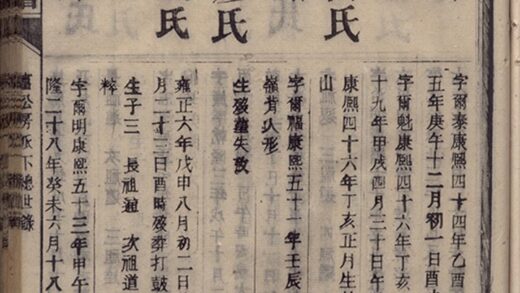 氏
氏
氏
字爾泰康熙四十四年乙酉
五年庚午十二月初一日酉
字爾魁康熙四十六年丁亥
十九年甲戌四月三十日午
康熙四十六年丁亥正月生
山
字爾康熙五十一年壬辰
嶺背人形
生歿塟失攷
雍正六年戊申八月初二日
月二十三日酉時歿葬打鼓
生子三 長祖 次祖道
粹
字爾明康熙五十三年甲午
隆二十八年癸未六月十八
公房承下總世錄